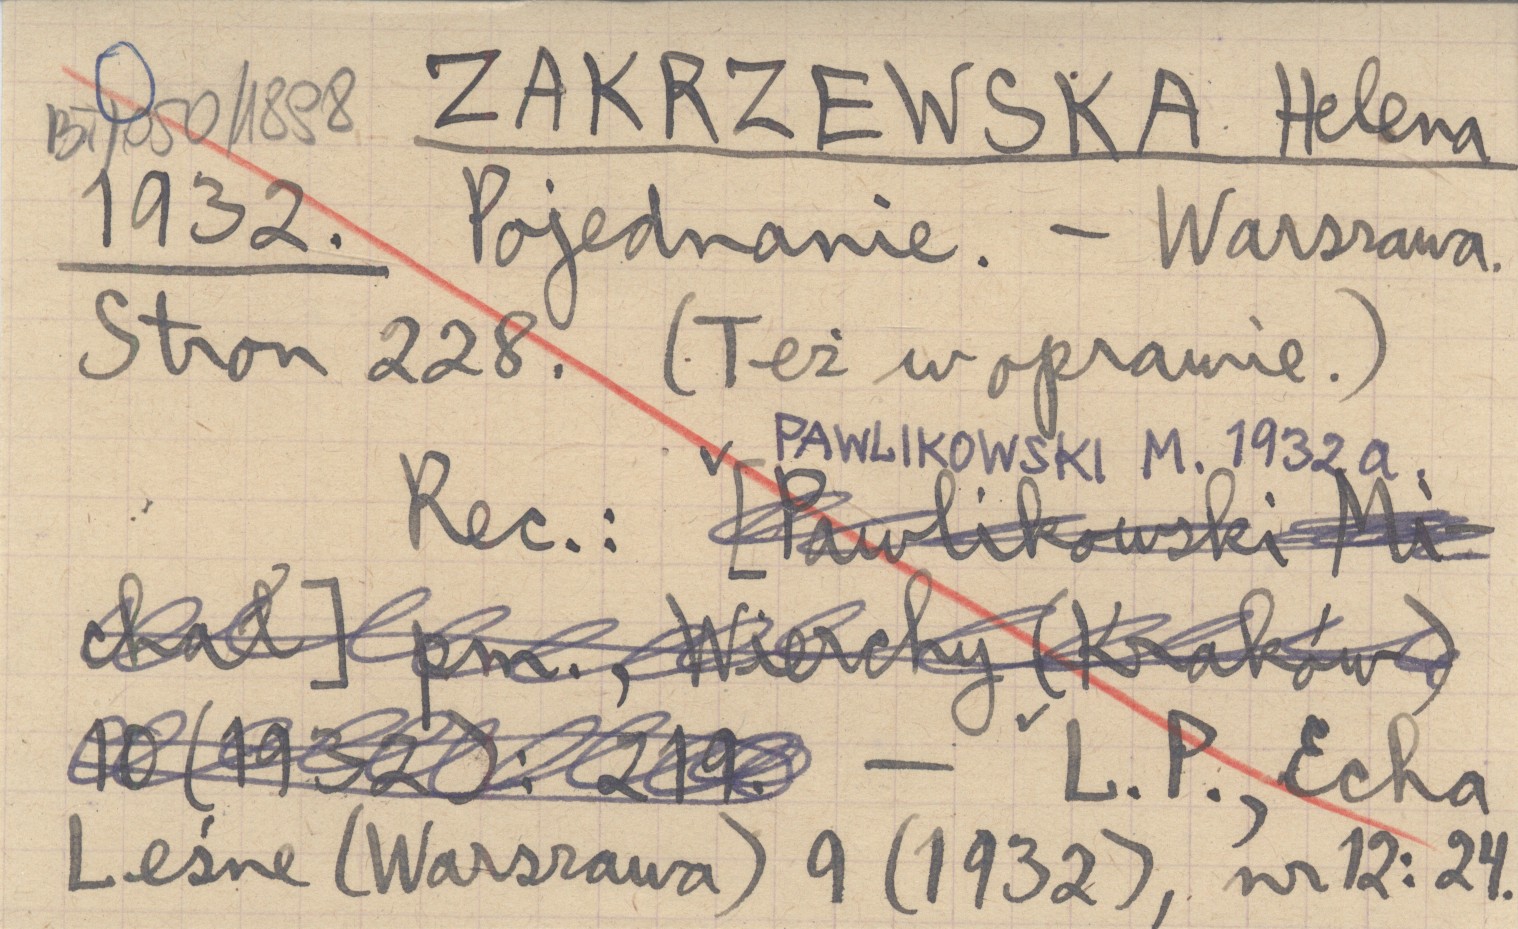 BT/050/1898 ZAKRZEWSKA Helena
1932. Pojednanie. - Warszawa.
Stron 228. (Też w oprawie.)
PAWLIKOWSKI M. 1932a.
Rec.: [Pawlikowski Mi-
chał] pm., Wierchy (Kraków)
10 (1932): 219. — L.P., Echa
Leśne (Warszawa) 9 (1932), nr 12: 24.